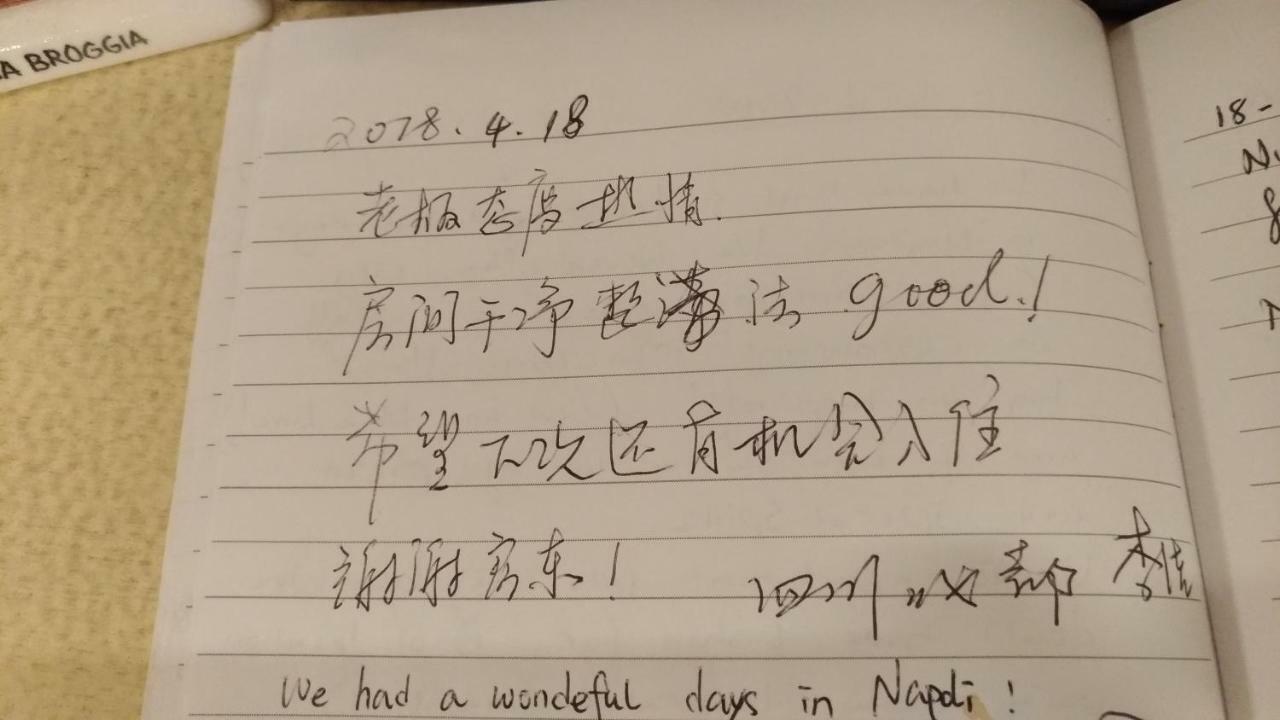 A BROGGIA
2018.4.18
老板态度热情.
房间干净整洁 good.!
希望下次还有机会入住
谢谢房东! 四川成都 李倩
We had a wondeful days in Napoli!
18-